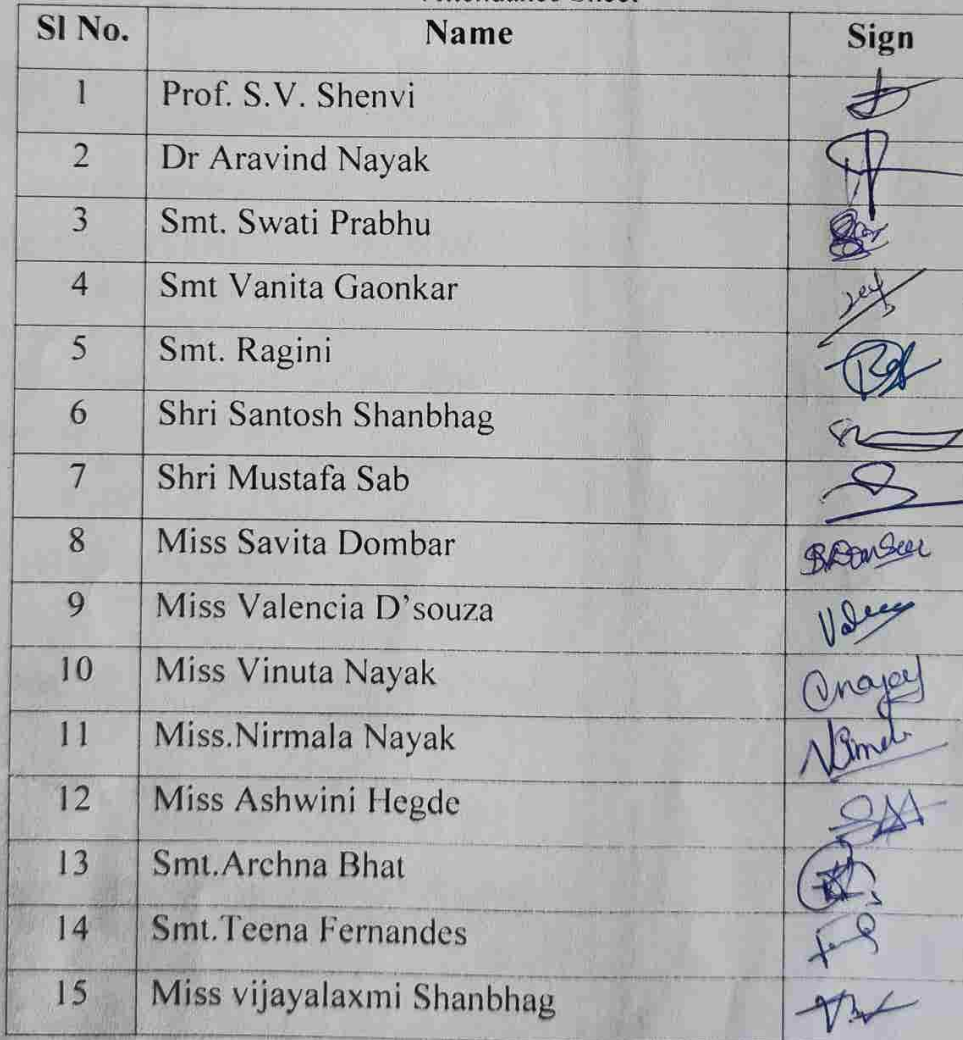 Attendance Sheet
Sl No. Name Sign
1 Prof. S.V. Shenvi
2 Dr Aravind Nayak
3 Smt. Swati Prabhu
4 Smt Vanita Gaonkar
5 Smt. Ragini
6 Shri Santosh Shanbhag
7 Shri Mustafa Sab
8 Miss Savita Dombar
9 Miss Valencia D’souza
10 Miss Vinuta Nayak
11 Miss.Nirmala Nayak
12 Miss Ashwini Hegde
13 Smt.Archna Bhat
14 Smt.Teena Fernandes
15 Miss vijayalaxmi Shanbhag